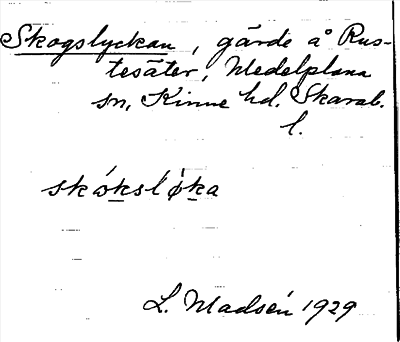 Skogslyckan, gärde å Rus-
tesäter, Medelplana
sn, Kinne hd. Skarab.
l.
skó̱ksló̱ka
L. Madsén 1929